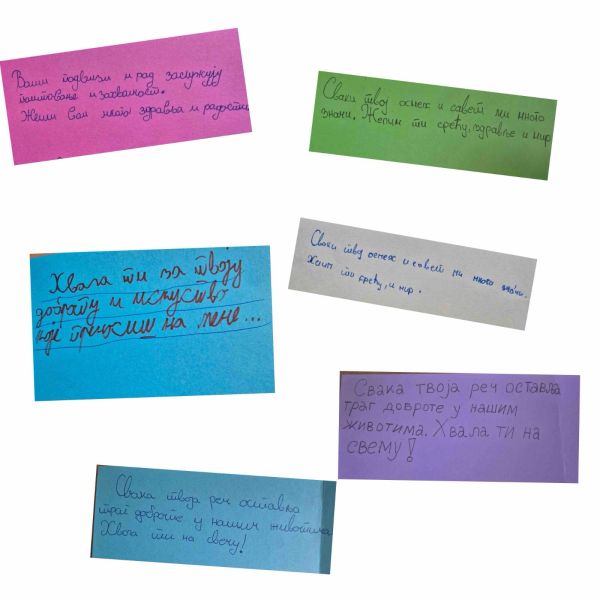 Ваши подвизи и рад заслужују
поштовање и захвалност.
Желим Вам много здравља и радости
Сваки твој осмех и савет ми много
значи, Желим ти срећу, здравље и мир
Сваки твој осмех и савет ми много значи.
Желим ти срећу, и мир.
Хвала ти за твоју
доброту и искуство
које преносиш на мене...
Свака твоја реч оставља
траг доброте у нашим
животима. Хвала ти на
свему!
Свака твоја реч оставља
траг доброте у нашим животима
Хвала ти на свему!